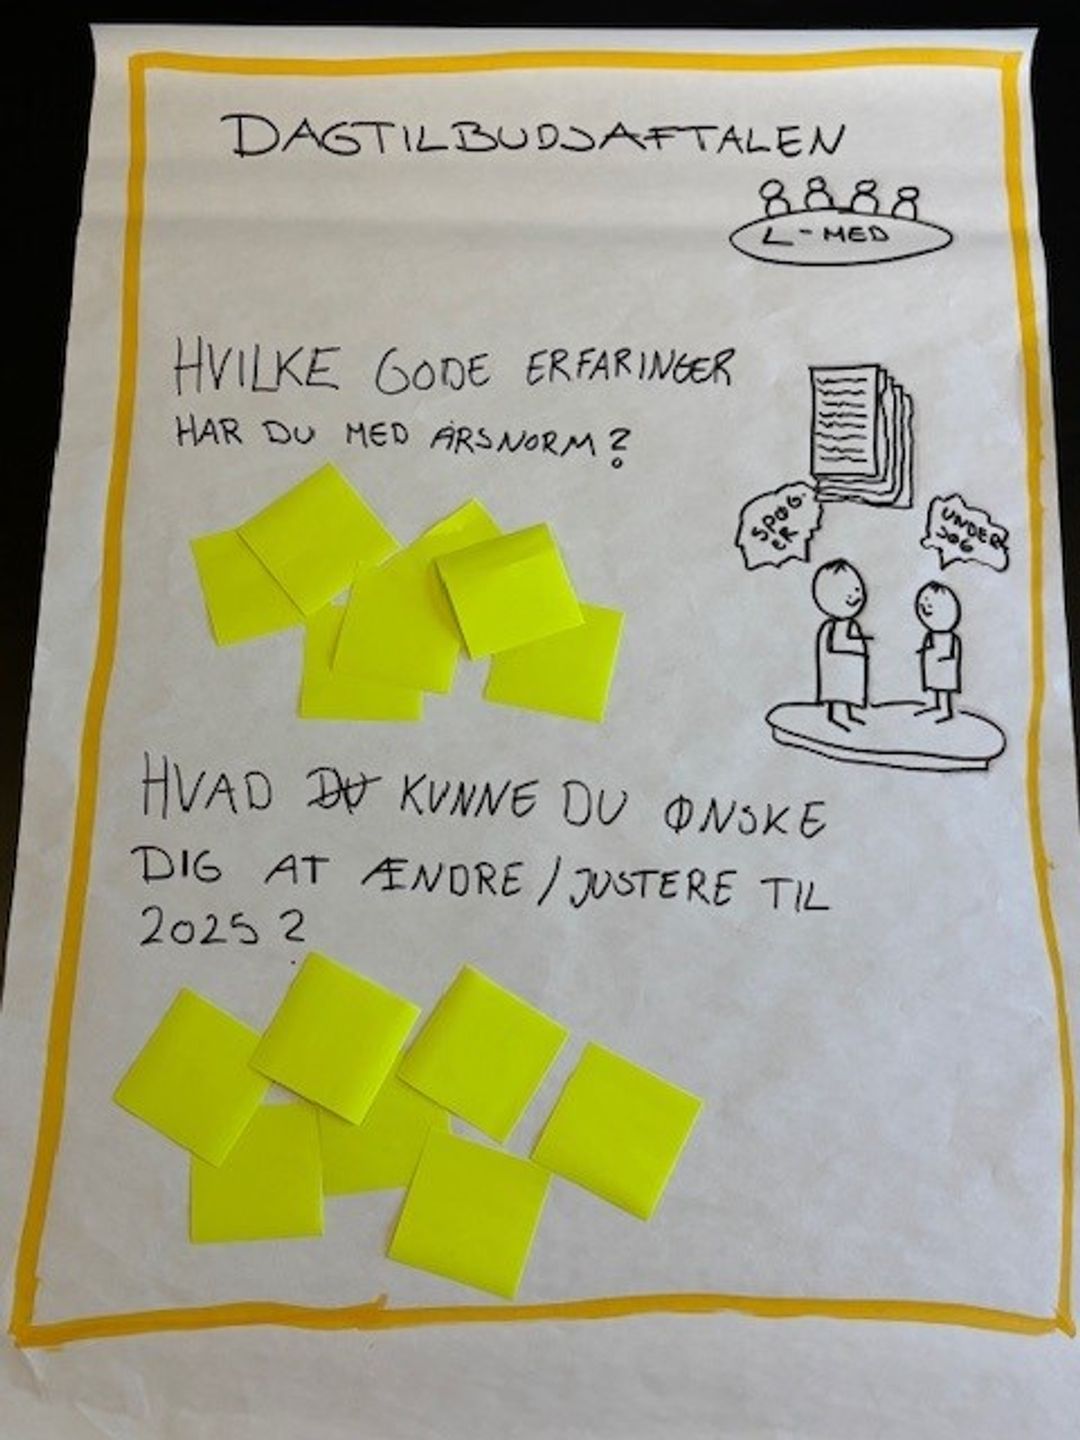 DAGTILBUDSAFTALEN
L-MED
HVILKE GODE ERFARINGER
HAR DU MED ÅRSNORM?
SPØG
ER
UNDER
JOG
HVAD DU KUNNE DU ØNSKE
DIG AT ÆNDRE / JUSTERE TIL
2025?